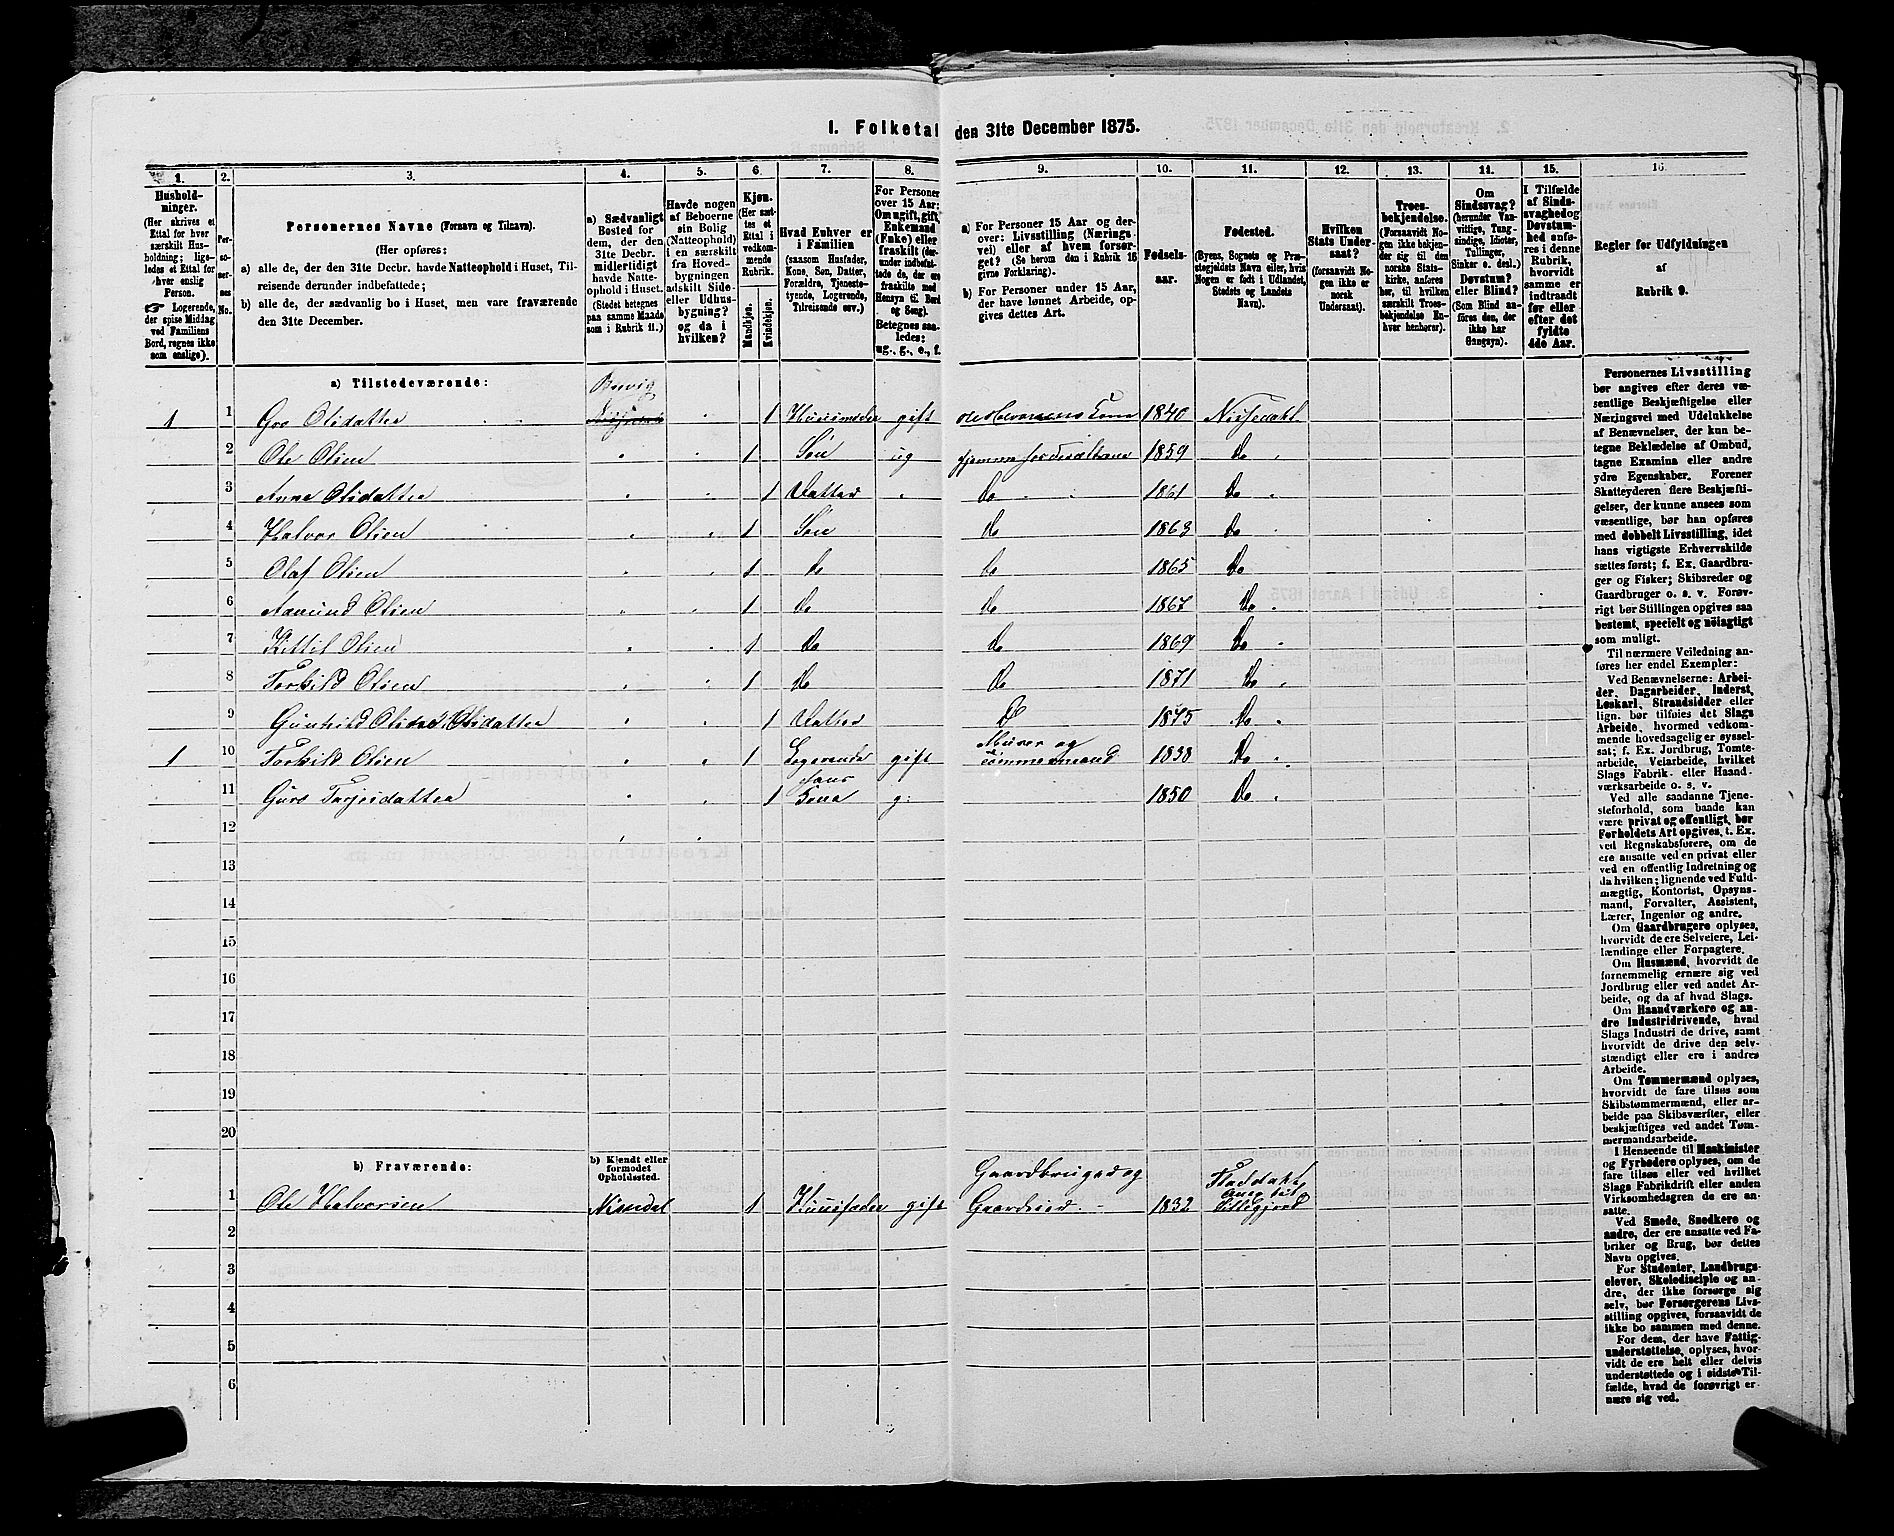 I. Folketal den 31te December 1875.
1. 2. 3. 4. 5. 6. 7. 8. 9. 10. 11. 12. 13. 14. 15. 16.
Hushold-
ninger.
(Her skrives et
Ettal for hver
særskilt Hus-
holdning; lige-
ledes et Ettal for
hver enslig
Person.
☞ Logerende,
der spise Middag
ved Familiens
Bord, regnes ikke
som enslige).
Per-
soner-
nes
No.
Personernes Navne (Fornavn og Tilnavn).
(Her opføres:
a) alle de, der den 31te Decbr. havde Natteophold i Huset, Til-
reisende derunder indbefattede;
b) alle de, der sædvanlig bo i Huset, men vare fraværende
den 31te December.
a) Sædvanligt
Bosted for
dem, der den
31te Decbr.
midlertidigt
havde Natte-
ophold i Huset.
(Stedet betegnes
paa samme Maade
som i Rubrik 11.)
Havde nogen
af Beboerne
sin Bolig
(Natteophold)
i en særskilt
fra Hoved-
bygningen
adskilt Side-
eller Udhus-
bygning?
og da i
hvilken?
Kjøn.
(Her sæt-
tes et
Ettal i
vedkom-
mende
Rubrik.
Mandkjøn.
Kvindekjøn.
Hvad Enhver er
i Familien
(saasom Husfader,
Kone, Søn, Datter,
Forældre, Tjeneste-
tyende, Logerende,
Tilreisende osv.)
For Personer
over 15 Aar:
Om ugift, gift,
Enkemand
(Enke) eller
fraskilt (der-
under indbefat-
tede de, der ere
fraskilte med
Hensyn til Bord
og Seng).
Betegnes saa-
ledes:
ug., g., e., f.
a) For Personer 15 Aar og der-
over: Livsstilling (Nærings-
vei) eller af hvem forsør-
get? (Se herom den i Rubrik 16
givne Forklaring).
b) For Personer under 15 Aar,
der have lønnet Arbeide, op-
gives dettes Art.
Fødsels-
aar.
Fødested.
(Byens, Sognets og Præ-
stegjeldets Navn eller, hvis
Nogen er født i Udlandet,
Stedets og Landets
Navn).
Hvilken
Stats Under-
saat?
(forsaavidt No-
gen ikke er
norsk
Undersaat).
Troes-
bekjendelse.
(Forsaavidt No-
gen ikke bekjen-
der sig til den
norske Stats-
kirke, anføres
her, til hvilken
særskilt Troes-
bekjendelse En-
hver henhører).
Om
Sindssvag?
(herunder Van-
vittige, Tung-
sindige, Idioter,
Tullinger,
Sinker o. desl.)
Døvstum?
eller Blind?
(Som Blind an-
føres den, der
ikke har
Gangsyn).
I Tilfælde
af Sinds-
svaghed og
Døvstum-
hed anfø-
res i denne
Rubrik,
hvorvidt
samme er
indtraadt
før eller
efter det
fyldte
4de Aar.
Regler for Udfyldningen
af
Rubrik 9.
a) Tilstedeværende:
1 1 Gro Olsdatter 1 Huusmoder gift Ole Halvorsens Kone 1840 Nissedahl
2 Ole Olsen 1 Søn ug hjemme 1859 Do
3 Anne Olsdatter 1 Datter Do 1861 Do
4 Halvor Olsen 1 Søn Do 1863 Do
5 Olaf Olsen 1 do do 1865 Do
6 Aamund Olsen 1 do do 1867 Do
7 Kittil Olsen 1 do do 1869 Do
8 Torkild Olsen 1 do do 1871 Do
9 Gunhild Olsdatter 1 Datter D 1875 Do
1 10 Torkild Olsen 1 Logerende gift Murer og Tømmermand 1838 Do
11 Guro Tarjeisdatter 1 hans Kone g: 1850 Do
12
13
14
15
16
17
18
19
20
b) Fraværende:
b) Kjendt eller
formodet
Opholdssted.
1 Ole Halvorsen Nisedal 1 Huusfader gift Gaardbruger og Gaardeier 1832
2
3
4
5
6
Personernes Livsstilling
bør angives efter deres væ-
sentlige Beskjæftigelse eller
Næringsvei med Udelukkelse
af Benævnelser, der kun be-
tegne Beklædelse af Ombud,
tagne Examina eller andre
ydre Egenskaber. Forener
Skatteyderen flere Beskjæfti-
gelser, der kunne ansees som
væsentlige, bør han opføres
med dobbelt Livsstilling, idet
hans vigtigste Erhvervskilde
sættes først; f. Ex. Gaardbru-
ger og Fisker; Skibsreder og
Gaardbruger o. s. v. Forøv-
rigt bør Stillingen opgives saa
bestemt, specielt og nøiagtigt
som muligt.
Til nærmere Veiledning an-
føres her endel Exempler:
Ved Benævnelserne: Arbei-
der, Dagarbeider, Inderst,
Løskarl, Strandsidder eller
lign. bør tilføies det Slags
Arbeide, hvormed vedkom-
mende hovedsagelig er syssel-
sat; f. Ex. Jordbrug, Tomte-
arbeide, Veiarbeide, hvilket
Slags Fabrik- eller Haand-
værksarbeide o. s. v.
Ved alle saadanne Tjene-
steforhold, som baade kan
være privat og offentligt, bør
Forholdets Art opgives, t. Ex.
ved Regnskabsførere, om de
ere ansatte ved en privat eller
ved en offentlig Indretning og
da hvilken; lignende ved Fuld-
mægtig, Kontorist, Opsyns-
mand, Forvalter, Assistent,
Lærer, Ingeniør og andre.
Om Gaardbrugere oplyses,
hvorvidt de ere Selveiere, Lei-
lændinge eller Forpagtere.
Om Husmænd, hvorvidt de
fornemmelig ernære sig ved
Jordbrug eller ved andet Ar-
beide, og da af hvad Slags.
Om Haandværkere og an-
dre Industridrivende, hvad
Slags Industri de drive, samt
hvorvidt de drive den selv-
stændigt eller ere i andres
Arbeide.
Om Tømmermænd oplyses,
hvorvidt de fare tilsøs som
Skibstømmermænd, eller ar-
beide paa Skibsværfter, eller
beskjæftiges ved andet Tøm-
mermandsarbeide.
I Henseende til Maskinister
og Fyrbødere oplyses, om de
fare tilsøs eller ved hvilket
Slags Fabrikdrift eller anden
Virksomhedsgren de ere an-
satte.
Ved Smede, Snedkere og
andre, der ere ansatte ved Fa-
briker og Brug, bør dettes
Navn opgives.
For Studenter, Landbrugs-
elever, Skoledisciple og an-
dre, der ikke forsørge sig
selv, bør Forsørgerens Livs-
stilling opgives, forsaavidt de
ikke bo sammen med denne.
For dem, der have Fattig-
understøttelse, oplyses, hvor-
vidt de ere helt eller delvis
understøttede og i sidste Til-
fælde, hvad de forøvrigt er-
nære sig ved.